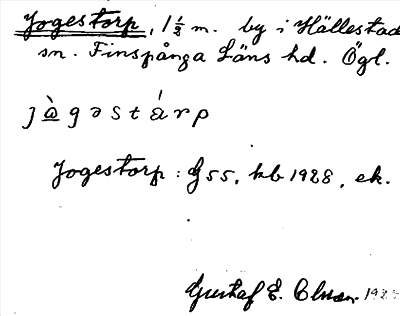 Jogestorp, 1½ m. by i Hällestad
sn. Finspånga Läns hd. Ögl.
jògəstárp
Jogestorp : G 55, kb 1928, ek.
Gustaf E.